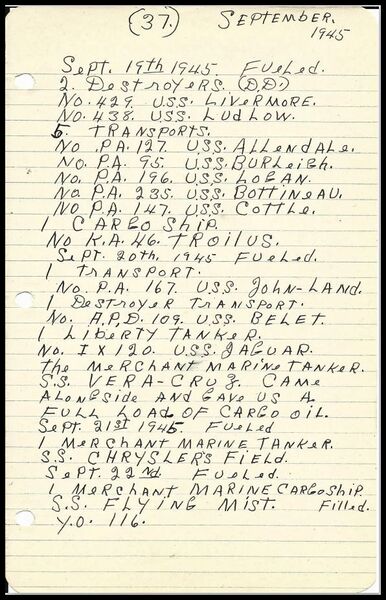 (37.) SEPTEMBER.
1945
Sept. 19th 1945. Fueled.
2. Destroyers. (D.D.)
No. 429. U.S.S. LIVERMORE.
No. 438. U.S.S. LUDLOW.
5. TRANSPORTS.
No P.A. 127. U.S.S. ALLENDALE.
No. P.A. 95. U.S.S. BURLEIGH.
No. P.A. 196. U.S.S. LOGAN.
No. P.A. 235. U.S.S. BOTTINEAU.
No P.A. 147. U.S.S. COTTLE.
1 CARGO SHIP.
No K.A. 46. TROILUS.
Sept. 20th. 1945 Fueled.
1 TRANSPORT.
No. P.A. 167. U.S.S. JOHN-LAND.
1 Destroyer TRANSPORT.
No. A.P.D. 109. U.S.S. BELET.
1 LIBERTY TANKER.
No. IX 120. U.S.S. JAGUAR.
the MERCHANT MARINE TANKER.
S.S. VERA-CRUZ. CAME
ALONGSIDE AND GAVE US A
FULL LOAD OF CARGO OIL.
Sept. 21st 1945 Fueled
1 MERCHANT MARINE TANKER.
S.S. CHRYSLER'S FIELD.
Sept. 22nd. Fueled.
1 MERCHANT MARINE CARGO SHIP.
S.S. FLYING MIST. Filled.
Y.O. 116.